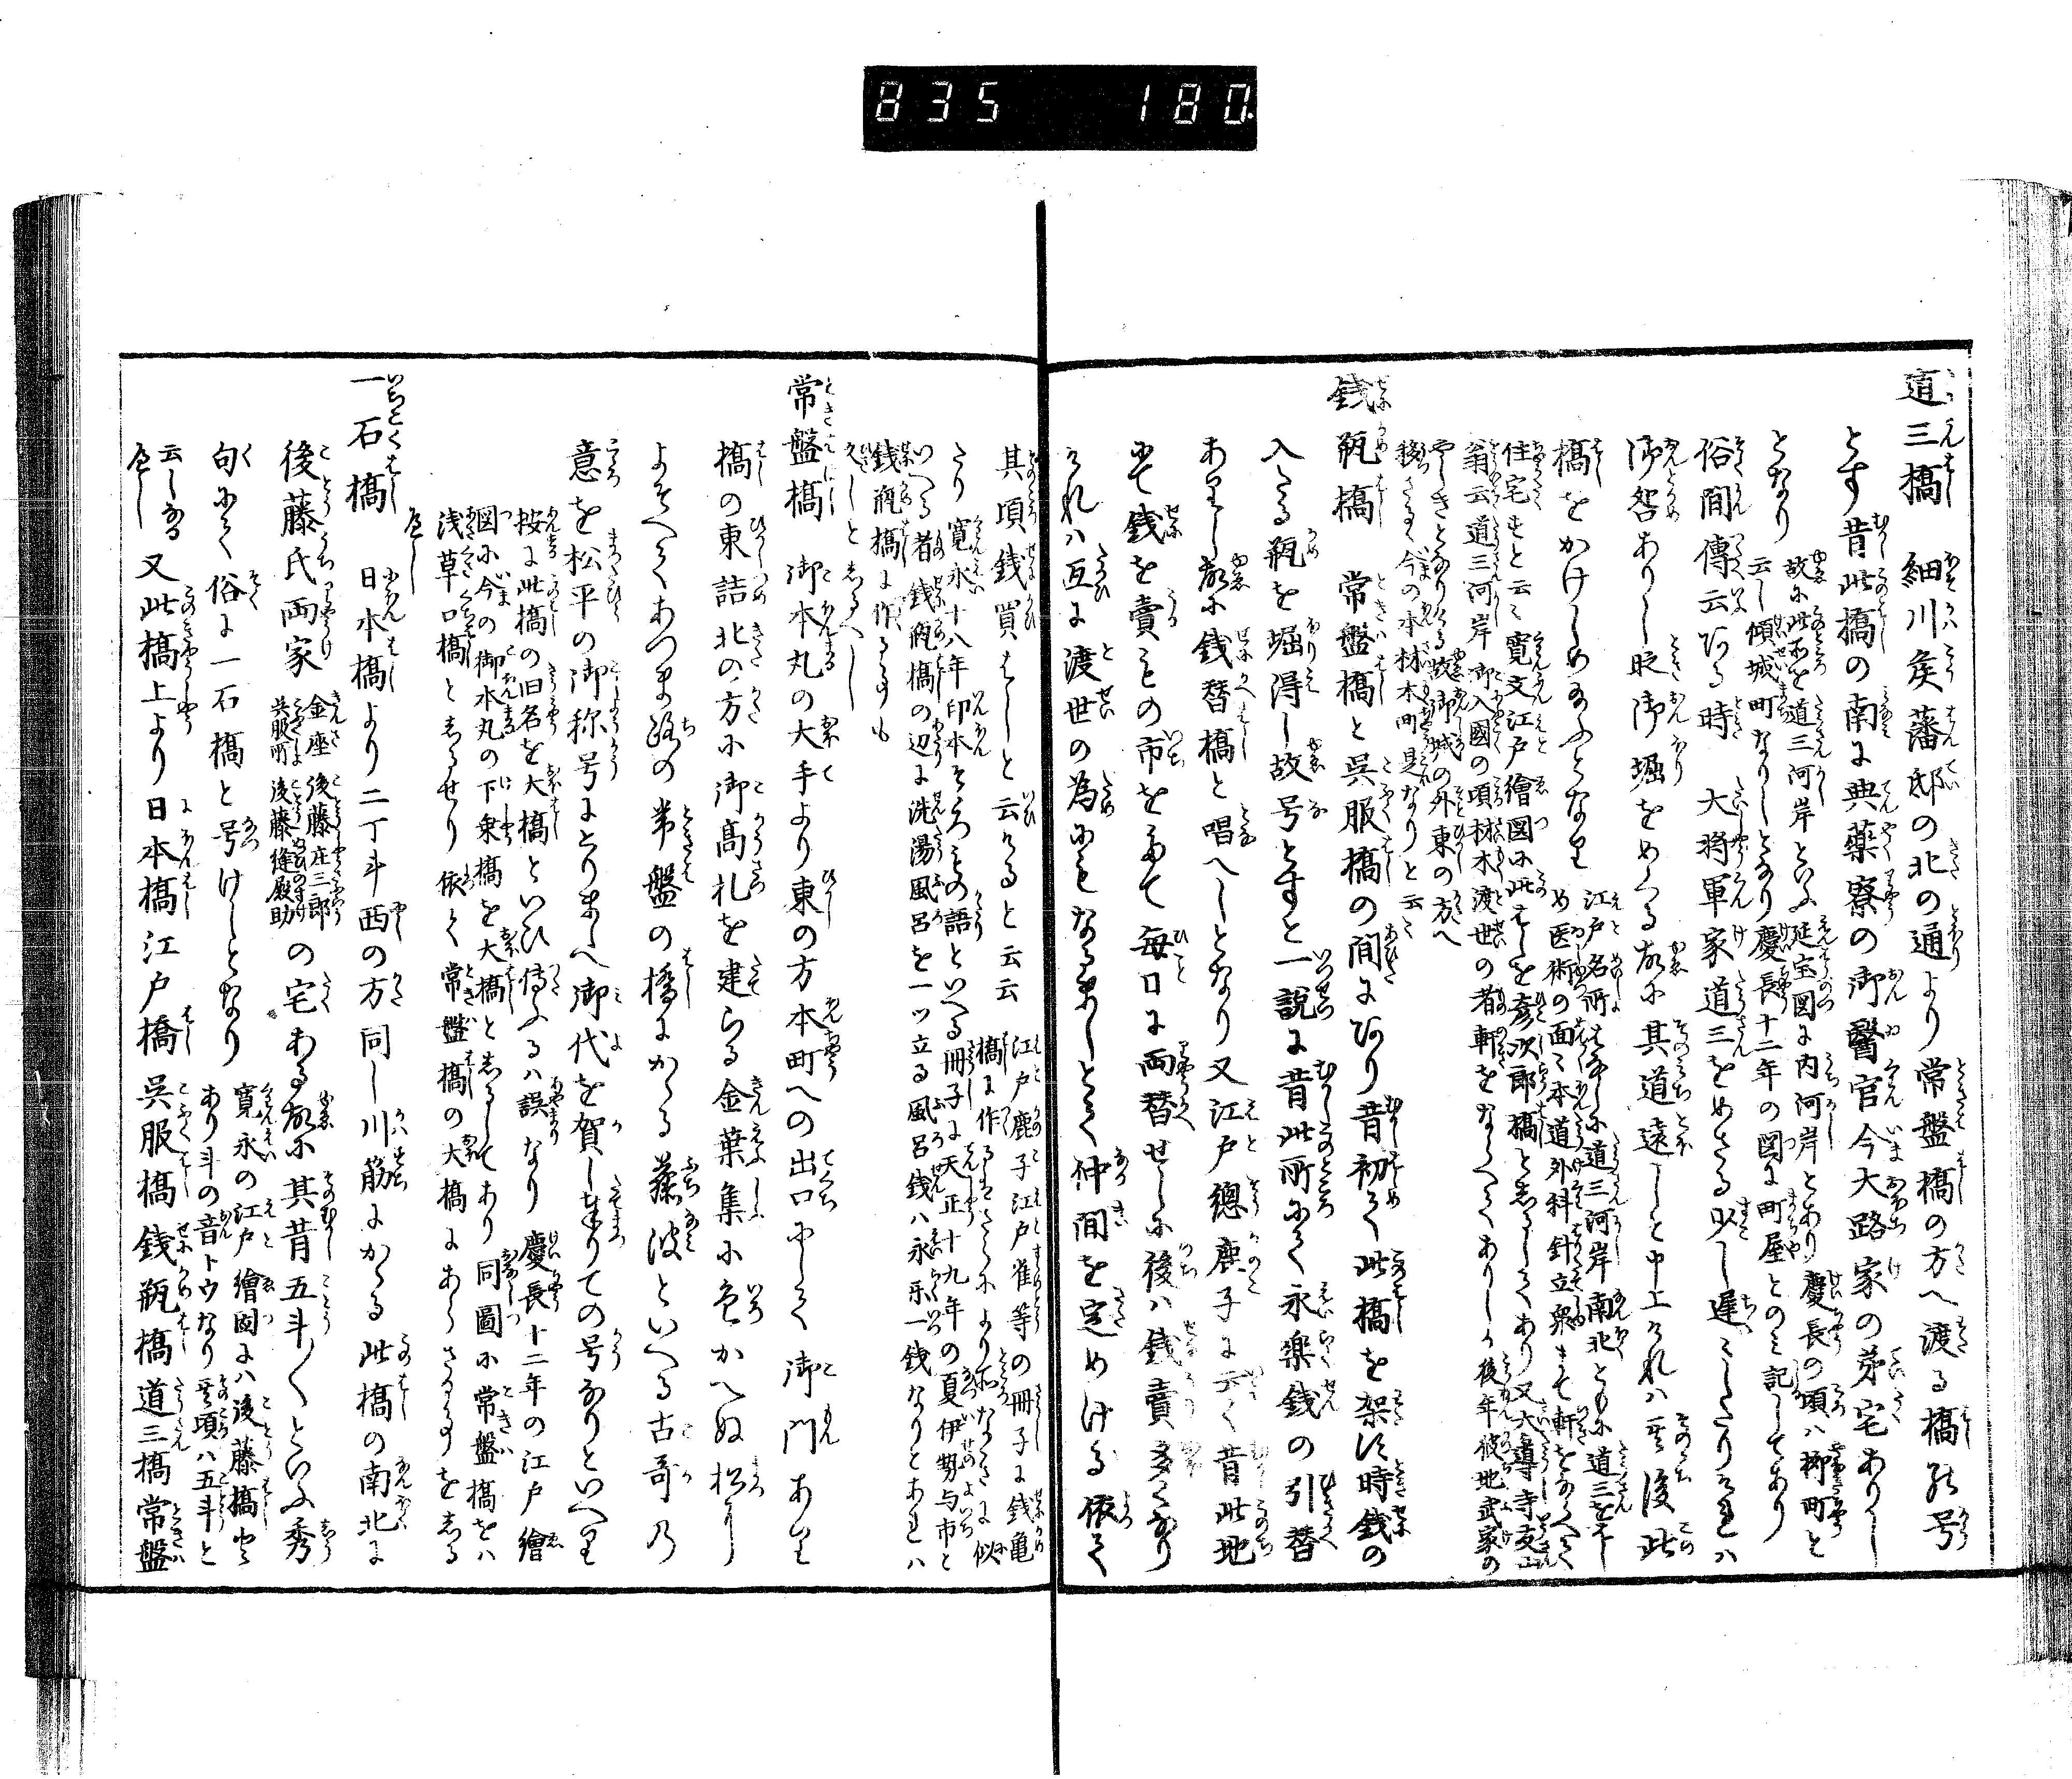 835 180
道三橋 細川侯藩邸の北の通より常盤橋の方へ渡る橋の号
とす昔此橋の南に典薬寮の御醫官今大路家の第宅ありし
故に此所を道三河岸といふ延宝図に内河岸とあり慶長の頃ハ柳町と
となり 云し傾城町なりしとなり慶長十二年の図に町屋とのミ記してあり
俗間傳云ある時 大将軍家道三をめさる
御咎ありし時御堀をめくる故に其道遠しと申上けれハ其後此
橋をかけしめ給ふとなり 江戸名所はなしに道三河岸南北ともに道三を
め医術の面々本道外科針立衆まて軒をならへて
住宅すと云々寛文江戸繪図に此はしを彦次郎橋としるしてあり又大導寺友山
翁云道三河岸御入國の頃材木渡世の者軒をならへてありしか後年彼地武家の
やしきとなりける故御城の外東の方へ
移さる今の本材木町是なりと云々
銭瓶橋 常盤橋と呉服橋の間にあり昔初て此橋を架す時銭の
入たる瓶を堀得し故号とすと一説に昔此所にて永楽銭の引替
ありし故に銭替橋と唱へしとなり又江戸總鹿子に云く昔此地
にて銭を賣ものの市を立て毎日に両替せしに後ハ銭賣多くなり
けれハ互に渡世の為にもなるましとて仲間を定めける依て
其頃銭買はしと云けると云云 江戸鹿子江戸雀等の冊子に銭亀
橋に作る
たり寛永十八年印本そゝろ物語といへる冊子に天正十九年の夏伊勢与市と
いへる者銭瓶橋の辺に洗湯風呂を一ツ立る風呂銭ハ永楽一銭なりとあれハ
銭瓶橋に作る事も
久しとしるへし
常盤橋 御本丸の大手より東の方本町への出口にして御門あり
橋の東詰北の方に御高札を建らる金葉集に色かへぬ松に
よそへてあつま路の常盤の橋にかゝる藤波といへる古哥乃
意を松平の御称号にとりまし御代を賀し奉りての号なりといへり
按に此橋の旧名を大橋といひ傳ふるハ誤なり慶長十二年の江戸繪
図に今の御本丸の下乗橋を大橋としるしてあり同圖に常盤橋をハ
浅草口橋としるせり依て常盤橋の大橋にあらさる事をしる
へし
一石橋 日本橋より二丁斗西の方同し川筋にかゝる此橋の南北に
後藤氏両家 金座後藤庄三郎 呉服所後藤縫殿助 の宅ある故に其昔五斗〱といふ秀
句にて俗に一石橋と号けしとなり 寛永の江戸繪図にハ後藤橋と
あり斗の音トウなり其頃ハ五斗と
云しなる
へし 又此橋上より日本橋江戸橋呉服橋銭瓶橋道三橋常盤